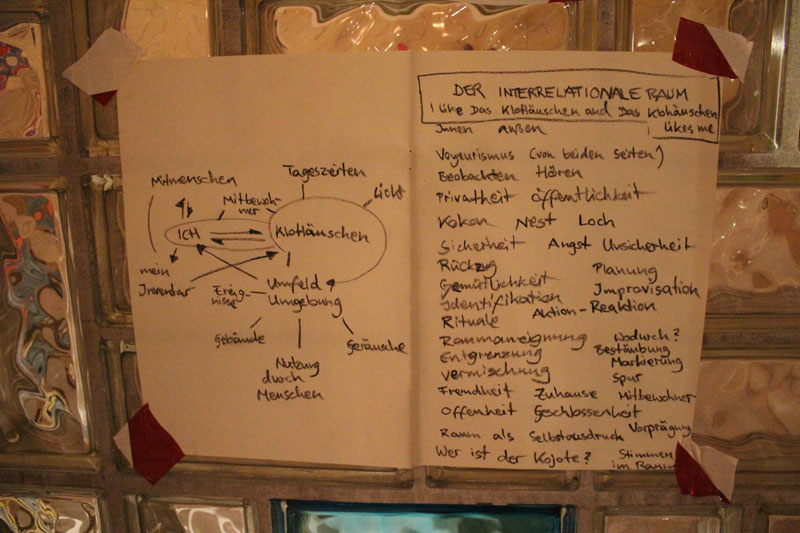 Mitmenschen
Tageszeiten
Licht
Mitbewoh-
ner
ICH
Klohäuschen
mein
Inventar
Ereig-
nisse
Umfeld
Umgebung
Gebäude
Geräusche
Nutzung
durch
Menschen
DER INTERRELATIONALE RAUM
I like Das Klohäuschen and Das Klohäuschen
likes me
Innen außen
Voyeurismus (von beiden seiten)
Beobachten Hören
Privatheit öffentlichkeit
Kokon Nest Loch
Sicherheit Angst Unsicherheit
Rückzug Planung
Gemütlichkeit Improvisation
Identifikation Aktion-Reaktion
Rituale
Raumaneignung Wodurch?
Entgrenzung Bestäubung
Vermischung Markierung
Spur
Fremdheit Zuhause Mitbewohner
Offenheit Geschlossenheit
Raum als Selbstausdruck Vorprägung
Wer ist der Kojote? Stimmen
im Raum